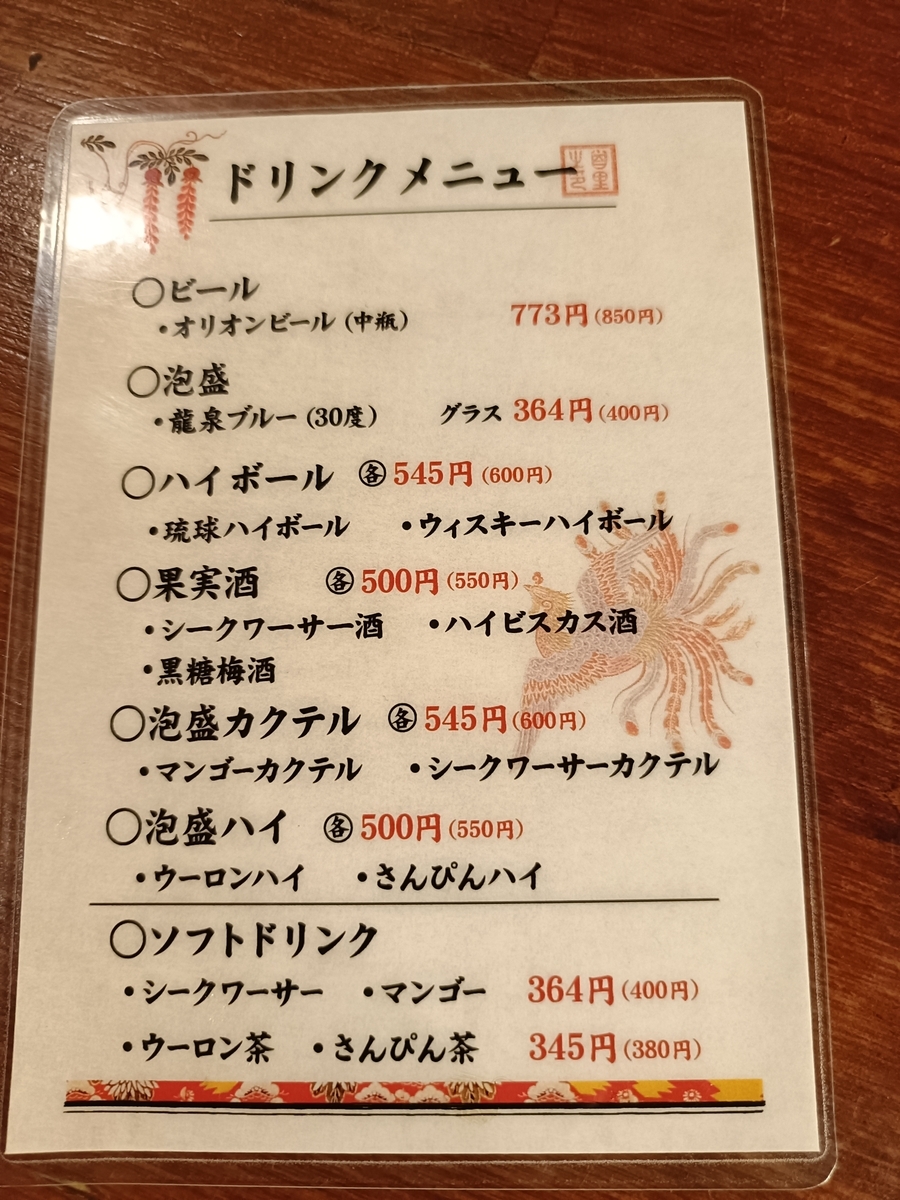 ドリンクメニュー
〇ビール
・オリオンビール (中瓶) 773円(850円)
〇泡盛
・龍泉ブルー (30度) グラス 364円(400円)
〇ハイボール ㊅545円(600円)
・琉球ハイボール ・ウィスキーハイボール
〇果実酒 各 500円(550円)
・シークワーサー酒 ・ハイビスカス酒
・黒糖梅酒
〇泡盛カクテル 各 545円(600円)
・マンゴーカクテル ・シークワーサーカクテル
〇泡盛ハイ 各 500円(550円)
・ウーロンハイ ・さんぴんハイ
〇ソフトドリンク
・シークワーサー ・マンゴー 364円(400円)
・ウーロン茶 ・さんぴん茶 345円(380円)